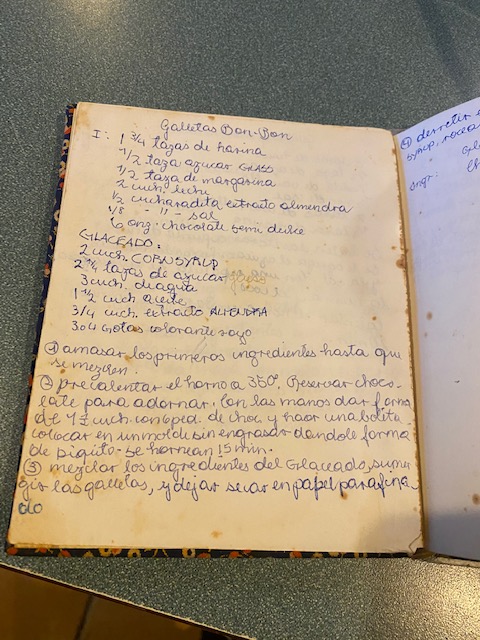 Galletas Bon-Bon
I: 1 3/4 tazas de harina
1/2 taza azucar GLASS
1/2 taza de margarina
2 cuch. leche
1/2 cucharadita extraito almendra
1/8 - 11 - sal
6 onz. chocolate semi dulce
GLACEADO:
2 cuch CORN SYRUP
2 1/4 tazas de azucar
3 cuch. de agua
1 1/2 cuch aceite
3/4 cuch. extracto ALMENDRA
3 o 4 gotas colorante rojo
① amasar los primeros ingredientes hasta que
se mezclen.
② precalentar el horno a 350°. Reservar choco-
late para adornar. Con las manos dar forma
de 1 1/2 cuch. con 6 ped. de choc. y hacer una bolita
colocar en un molde sin engrasar dandole forma
de piquito - se hornean 15 min.
③ mezclar los ingredientes del Glaceado, sumer
gir las galletas, y dejar secar en papel parafina
do
④ derretir
syrup, rocea
Ingr: